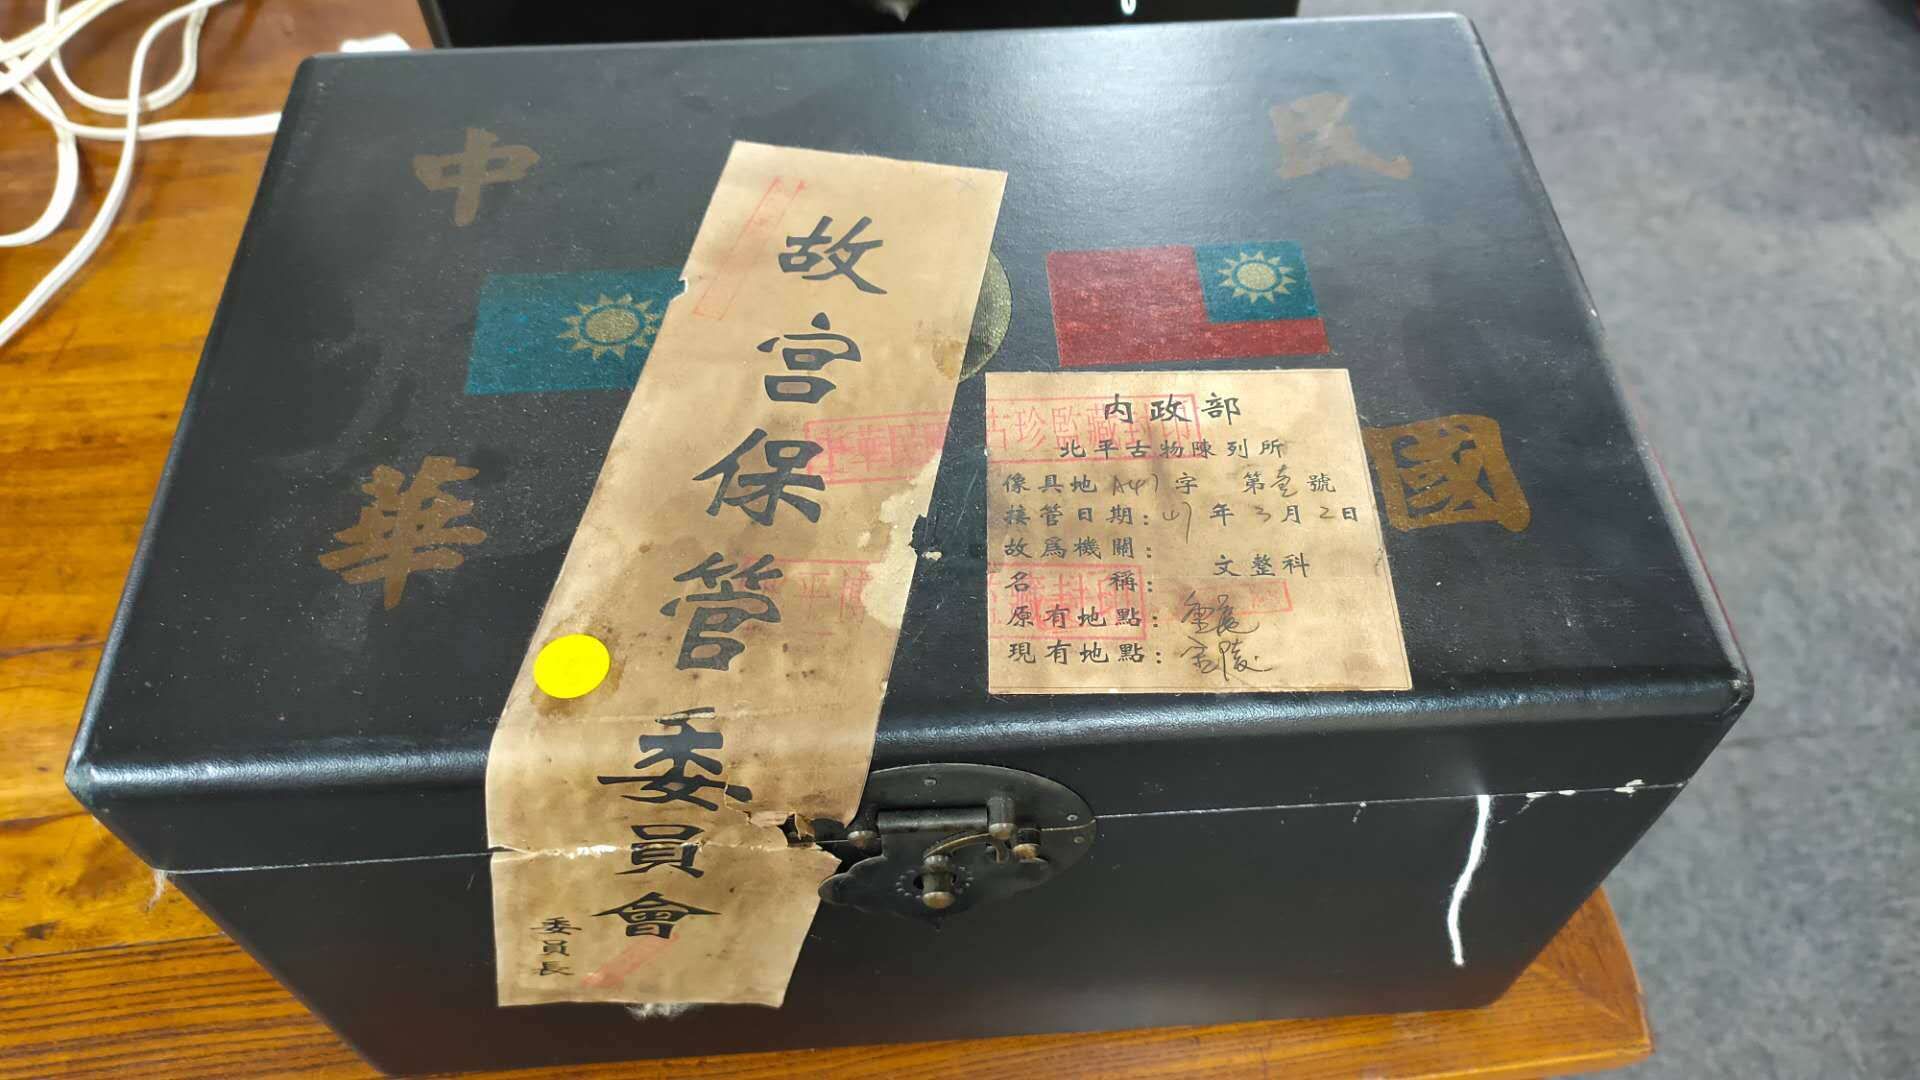 中華
民國
故宮保管委員會
委員長
內政部
北平古物陳列所
像具地 A47 字 第壹號
接管日期: 47 年 3月 2日
故為機關:
名 稱: 文整科
原有地點:
現有地點:
古珍監藏封印